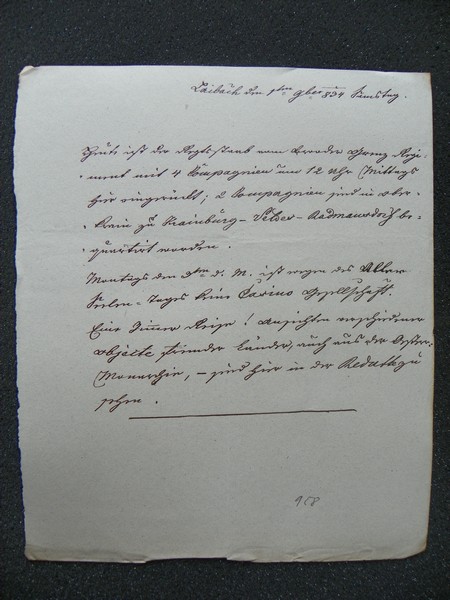 Laibach den 1ten 9ber 834 Samstag.
Heute ist der Regts: staab vom Brooder Grenz Regi-
ment mit 4 Compagnien um 12 Uhr Mittags
hier eingerückt; 2 Compagnien sind in Ober-
krain zu Krainburg - Velses - Radmansdorf be-
quartirt worden.
Montags den 3ten d. M. ist wegen des Aller
Seelen-Tages keine Casino Gesellschaft.
Eine Zimmer Reise! Ansichten verschiedener
Objecte fremder Länder, auch aus der Oester:
Monarchie, - sind hier in der Redoute zu
sehen.
958